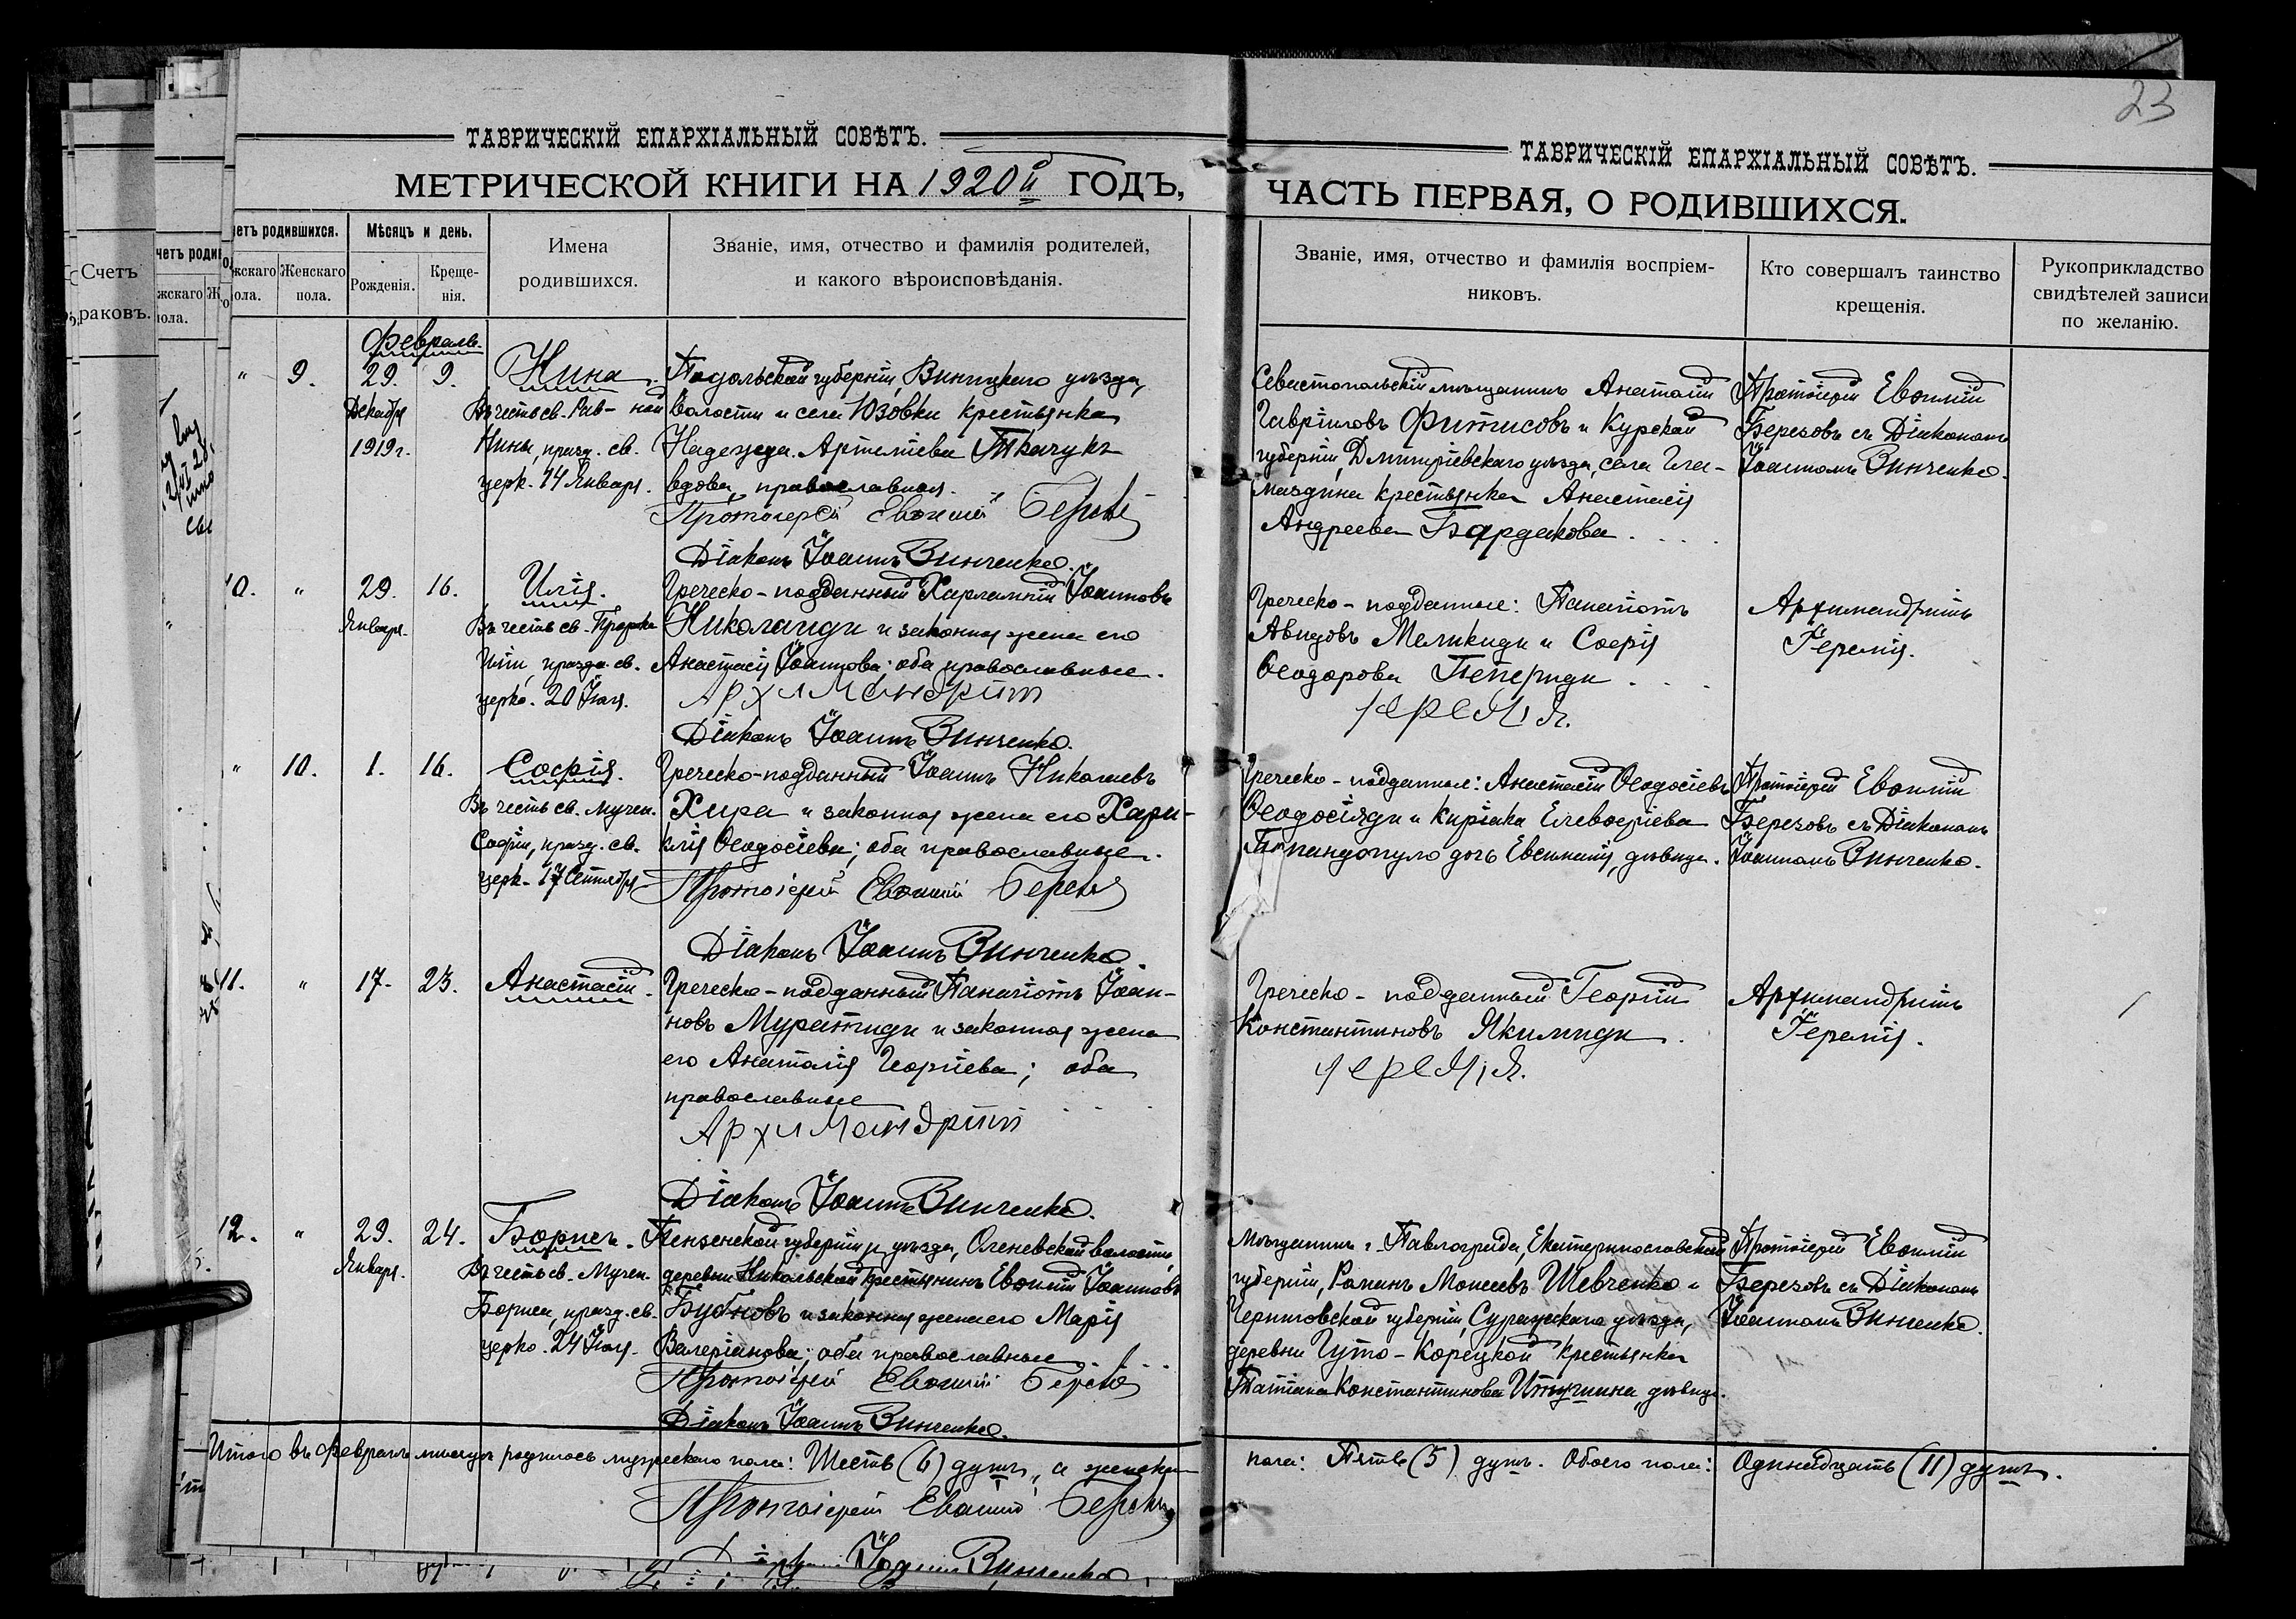 23
ТАВРИЧЕСКІЙ ЕПАРХІАЛЬНЫЙ СОВѢТЪ.
МЕТРИЧЕСКОЙ КНИГИ НА 1920й ГОДЪ,
Счетъ
раковъ.
четъ роди
жскаго
пола.
четъ родившихся.
Мѣсяцъ и день.
Имена
родившихся.
Званіе, имя, отчество и фамилія родителей,
и какого вѣроисповѣданія.
жскаго
пола.
Женскаго
пола.
Рожденія.
Креще-
нія.
Февраль.
" 9. 29. 9. Нина. Подольской губерніи, Винницкаго уѣзда,
Декабря Въ честь св. Рав-ной волости и села Юзовки крестьянка
1919 г. Нины, празд. св. Надежда Артеміева Ткачукъ
церк. 14 Января. вдова, православная.
Протоіерей Евѳимій
Діаконъ Іоаннъ Винченко.
10. " 29. 16. Илія. Греческо-подданный Харлампій Іоанновъ
Января. Въ честь св. Пророка Николаиди и законная жена его
Иліи, праздн. св. Анастасія Іоаннова; оба православные.
церко. 20 Іюля. Архимандрит
Діаконъ Іоаннъ Винченко.
" 10. 1. 16. Софія. Греческо-подданный Іоаннъ Николаевъ
Въ честь св. мучен. Хира и законная жена его Хари-
Софіи, празд. св. клія Ѳеодосіева; оба православные.
церк. 17 Сентября Протоіерей Евѳимій
Діаконъ Іоаннъ Винченко.
11. " 17. 23. Анастасій. Греческо-подданный Панаіотъ Іоан-
новъ Муратиди и законная жена
его Анатолія Георгіева; оба
православные
Архимандрит
Діаконъ Іоаннъ Винченко.
12. " 29. 24. Борисъ. Пензенской губерніи и уѣзда, Оленевской волости,
Января. Въ честь св. Мучен. деревни Никольской крестьянинъ Евѳимій Іоанновъ
Бориса, празд. св. Бубновъ и законная жена его Марія
церко. 24 Іюля. Валеріанова; оба православные
Протоіерей Евѳимій
Діаконъ Іоаннъ Винченко.
Итого въ февралѣ мѣсяцѣ родилось мужескаго пола: Шесть (6) душъ, а женска
Протоіерей Евѳимій
Іоаннъ Винченко
ТАВРИЧЕСКІЙ ЕПАРХІАЛЬНЫЙ СОВѢТЪ.
ЧАСТЬ ПЕРВАЯ, О РОДИВШИХСЯ.
Званіе, имя, отчество и фамилія воспріем-
никовъ.
Кто совершалъ таинство
крещенія.
Рукоприкладство
свидѣтелей записи
по желанію.
Севастопольскій мѣщанинъ Анатолій Протоіерей Евѳимій
Гавріиловъ Фитисовъ и Курской Березовъ съ Діакономъ
губерніи, Дмитріевскаго уѣзда, села Іоанномъ Винченко.
крестьянка Анастасія
Андреева Бардакова.
Греческо-подданные: Панаіотъ Архимандритъ
Авидовъ Меликиди и Софія Іеремія.
Ѳеодорова Пепериди
Іеремія.
Греческо-подданные: Анастасій Ѳеодосіевъ Протоіерей Евѳимій
Ѳеодосіяди и Киріака Елевѳеріева Березовъ съ Діакономъ
Папандопуло дочь Евѳимія, дѣвица. Іоанномъ Винченко.
Греческо-подданный Георгій Архимандритъ
Константиновъ Якимиди. Іеремія.
Іеремія.
Мѣщанинъ г. Павлограда, Екатеринославской Протоіерей Евѳимій
губерніи, Романъ Моисеевъ Шевченко и Березовъ съ Діакономъ
Черниговской губерніи, Суражскаго уѣзда, Іоанномъ Винченко.
деревни Гуто-Корецкой крестьянка
Татіана Константинова дѣвица.
пола: Пять (5) душъ. Обоего пола: Одинадцать (11) душъ.